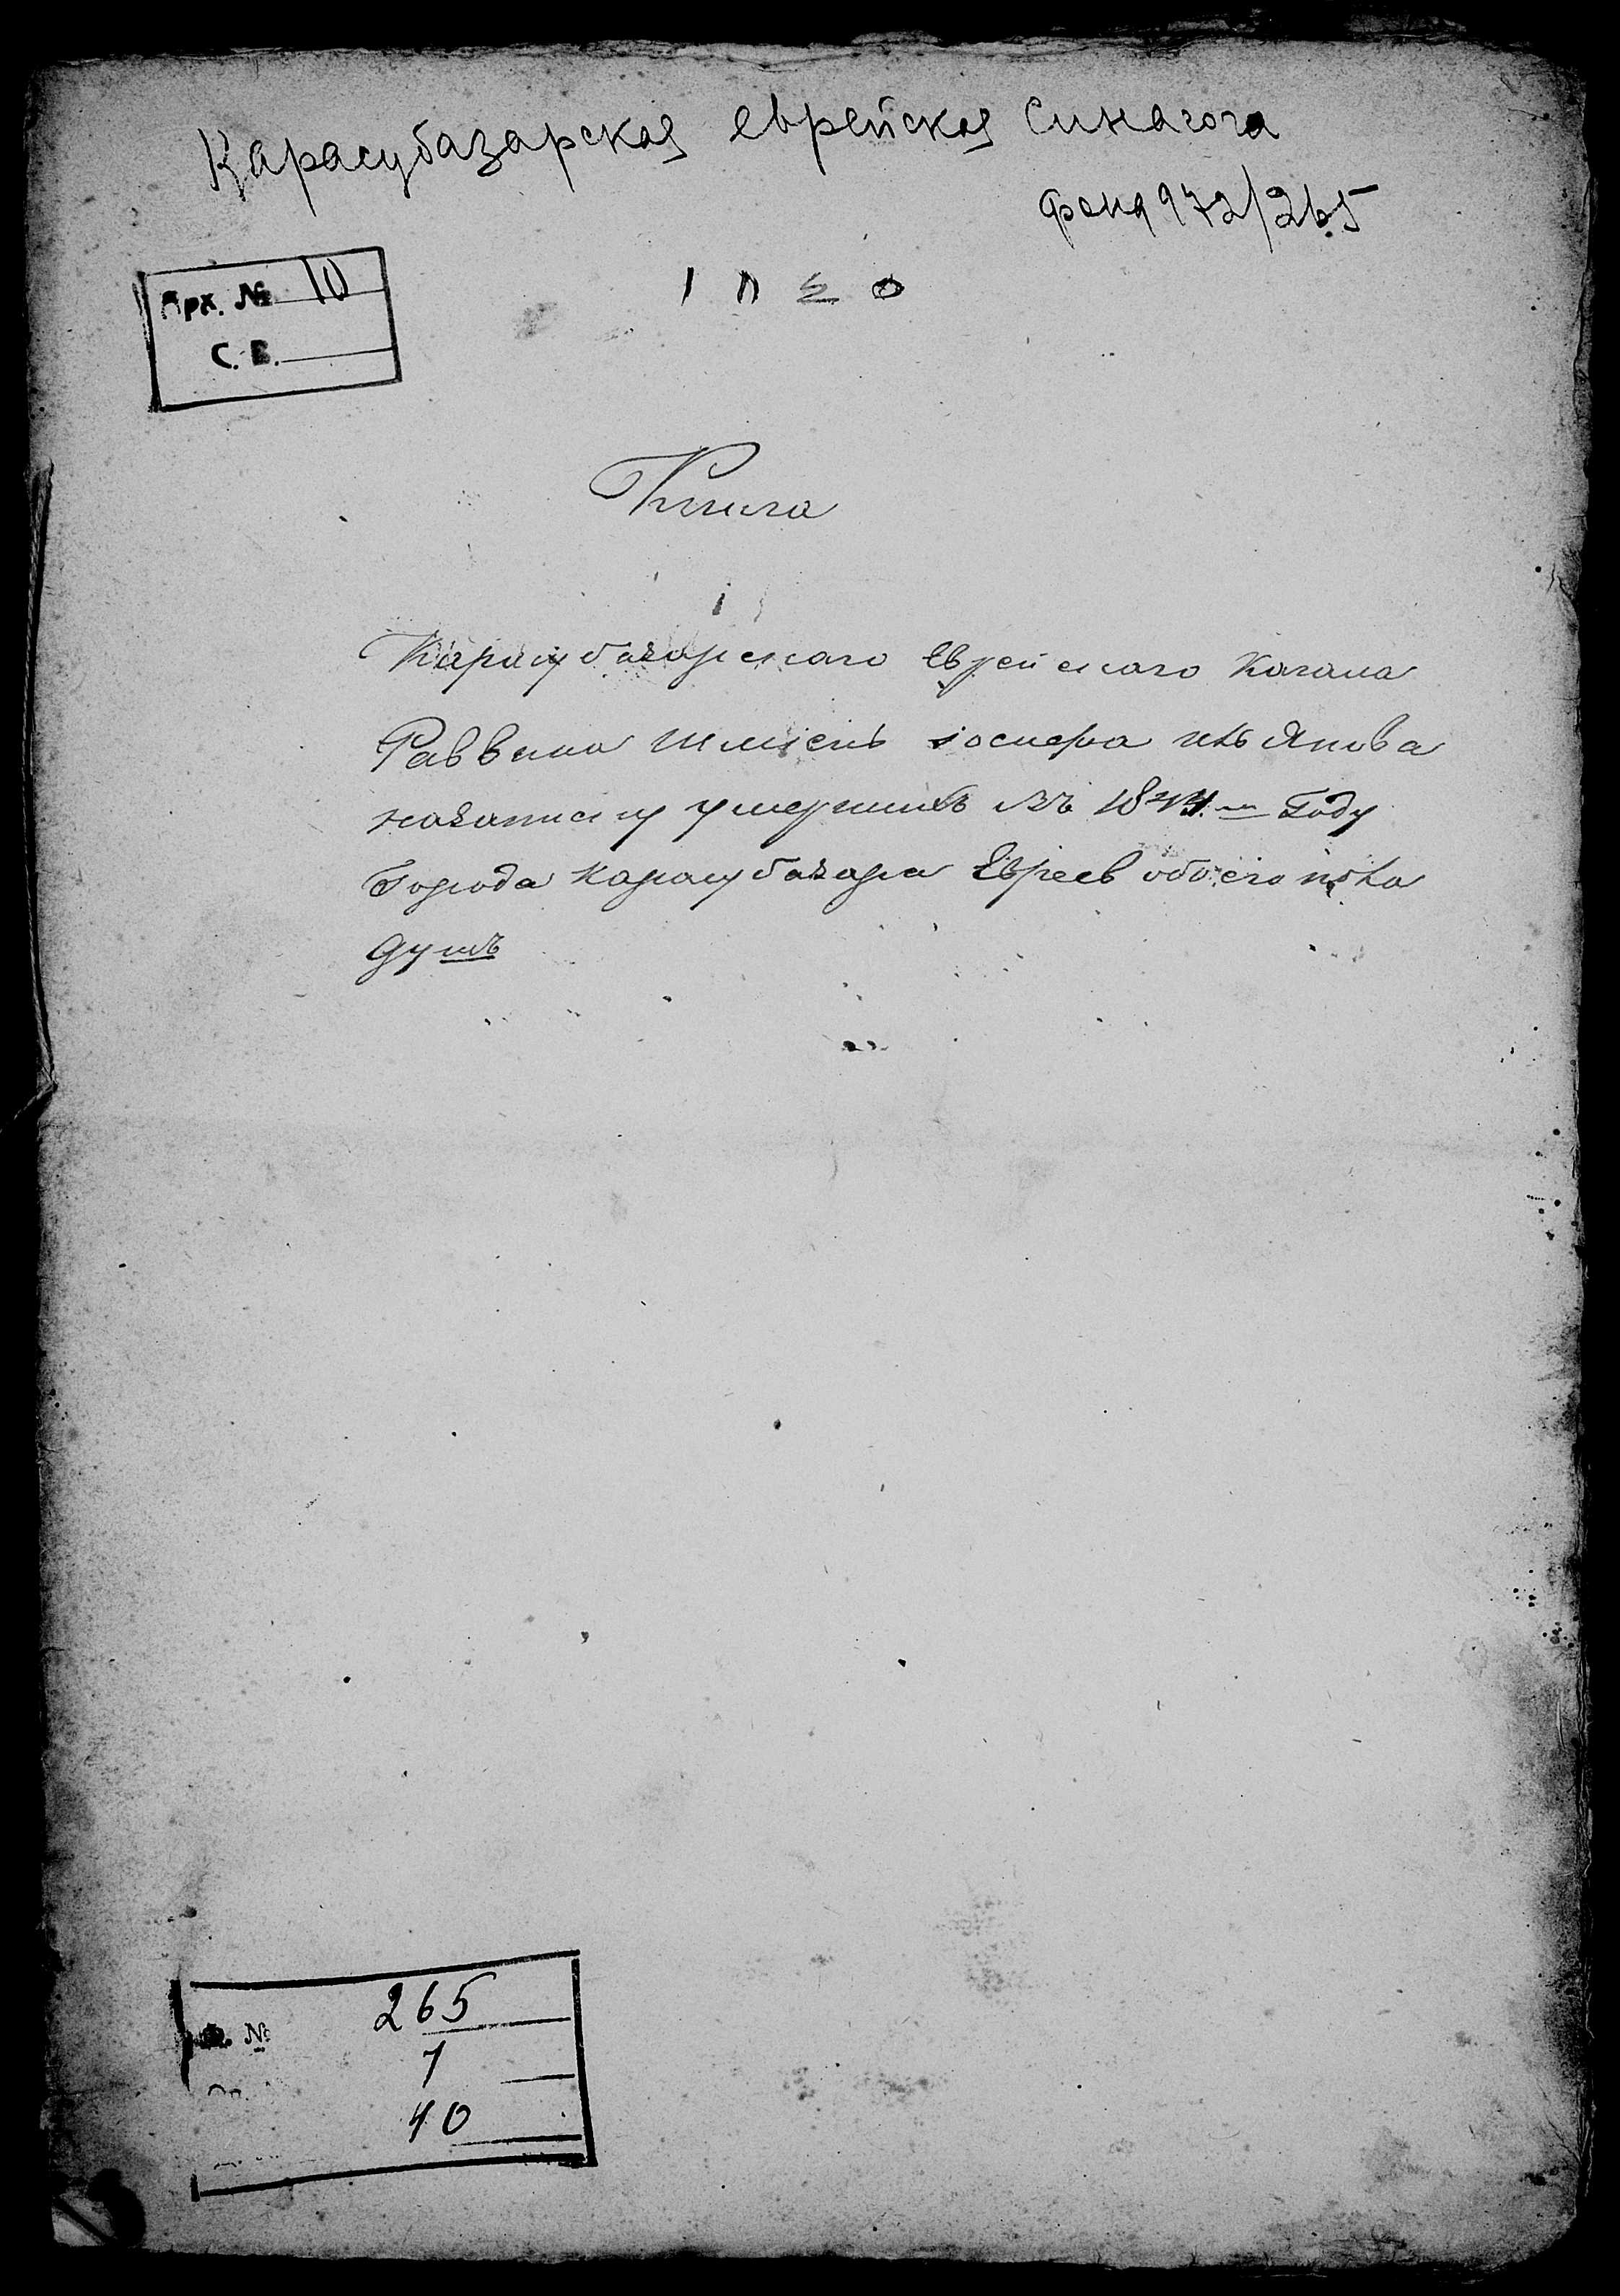 Карасубазарская еврейская Синагога
фонд 972/265
Арх. № 10
С. В.
Книга
Карасубазарскаго Еврейскаго Кагала
Раввина
назаписку умершихъ въ году
Города Карасубазара Евреев обоего пола
душъ
№ 265
1
40